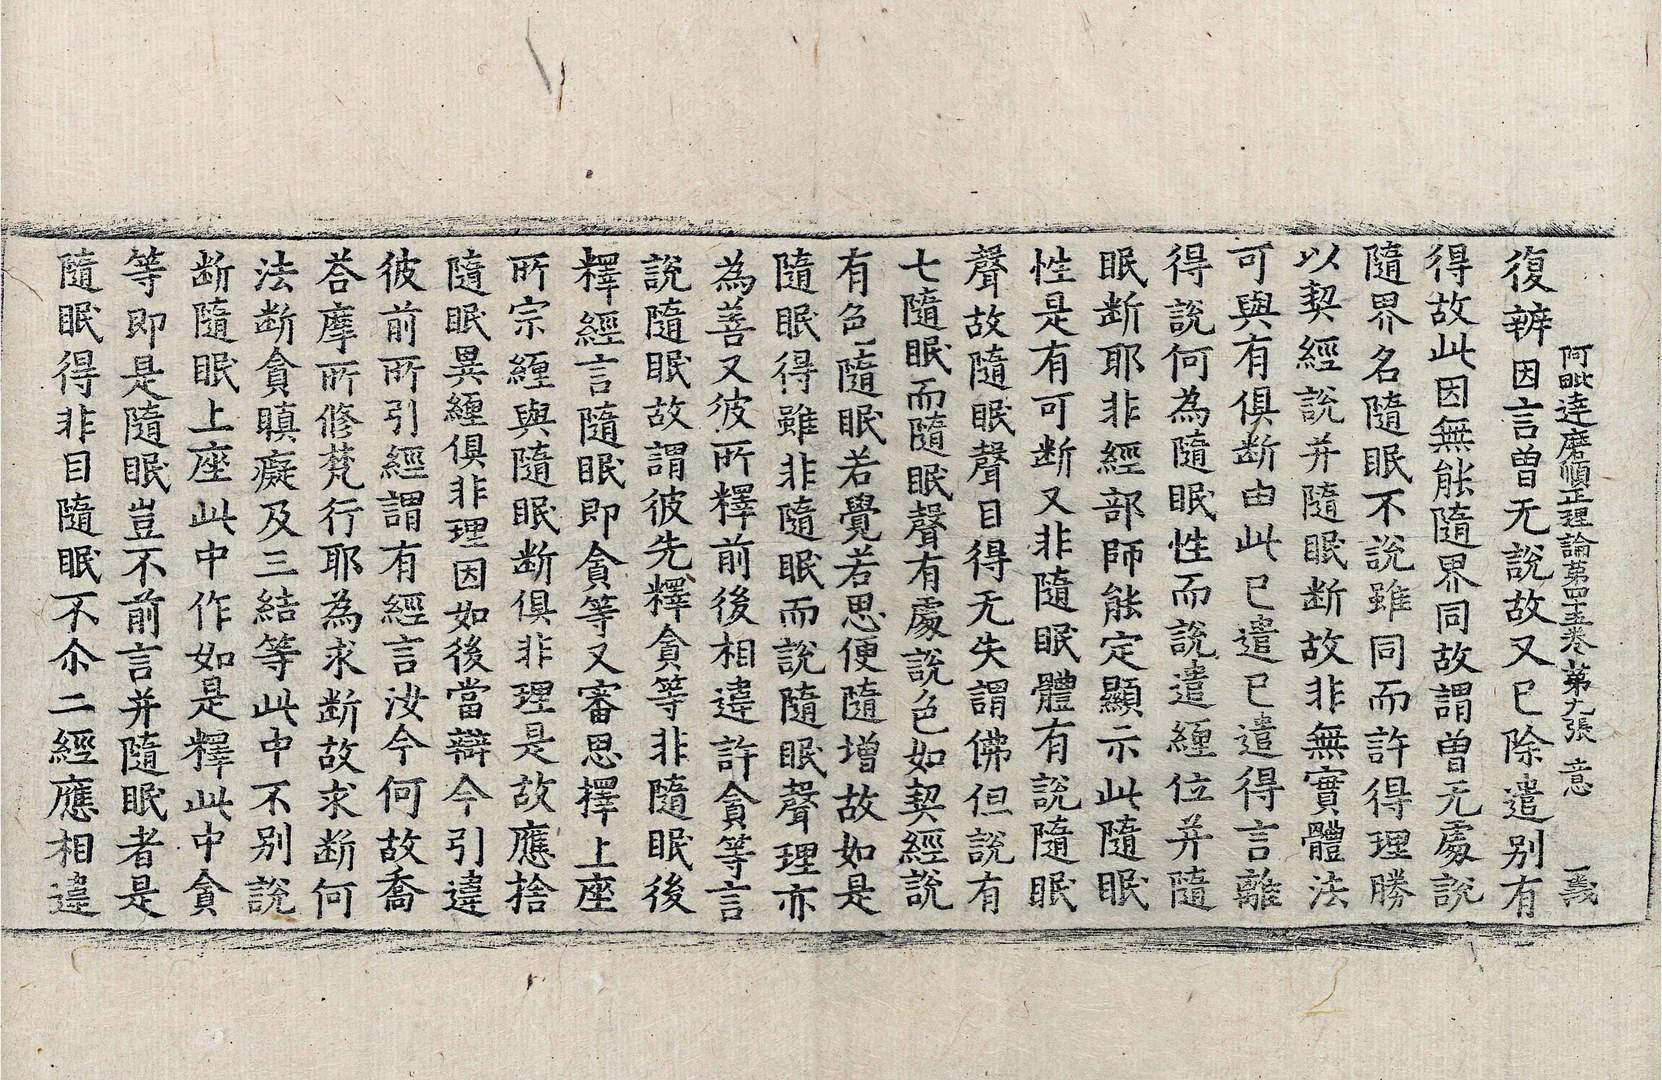 阿毗達磨順正理論第四十五卷 第九張 意 義
復辨因言曾无說故又已除遣別有
得故此因無能隨界同故謂曾无處說
隨界名隨眠不說雖同而許得理勝
以契經說并隨眠斷故非無實體法
可與有俱斷由此已遣已遣得言離
得說何為隨眠性而說遣纏位并隨
眠斷耶非經部師能定顯示此隨眠
性是有可斷又非隨眠體有說隨眠
聲故隨眠聲目得无失謂佛但說有
七隨眠而隨眠聲有處說色如契經說
有色隨眠若覺若思便隨增故如是
隨眠得雖非隨眠而說隨眠聲理亦
為善又彼所釋前後相違許貪等言
說隨眠故謂彼先釋貪等非隨眠後
釋經言隨眠即貪等又審思擇上座
所宗纏與隨眠斷俱非理是故應捨
隨眠異纏俱非理因如後當辯今引違
彼前所引經謂有經言汝今何故喬
荅摩所修梵行耶為求斷故求斷何
法斷貪瞋癡及三結等此中不別說
斷隨眠上座此中作如是釋此中貪
等即是隨眠豈不前言并隨眠者是
隨眠得非目隨眠不尒二經應相違